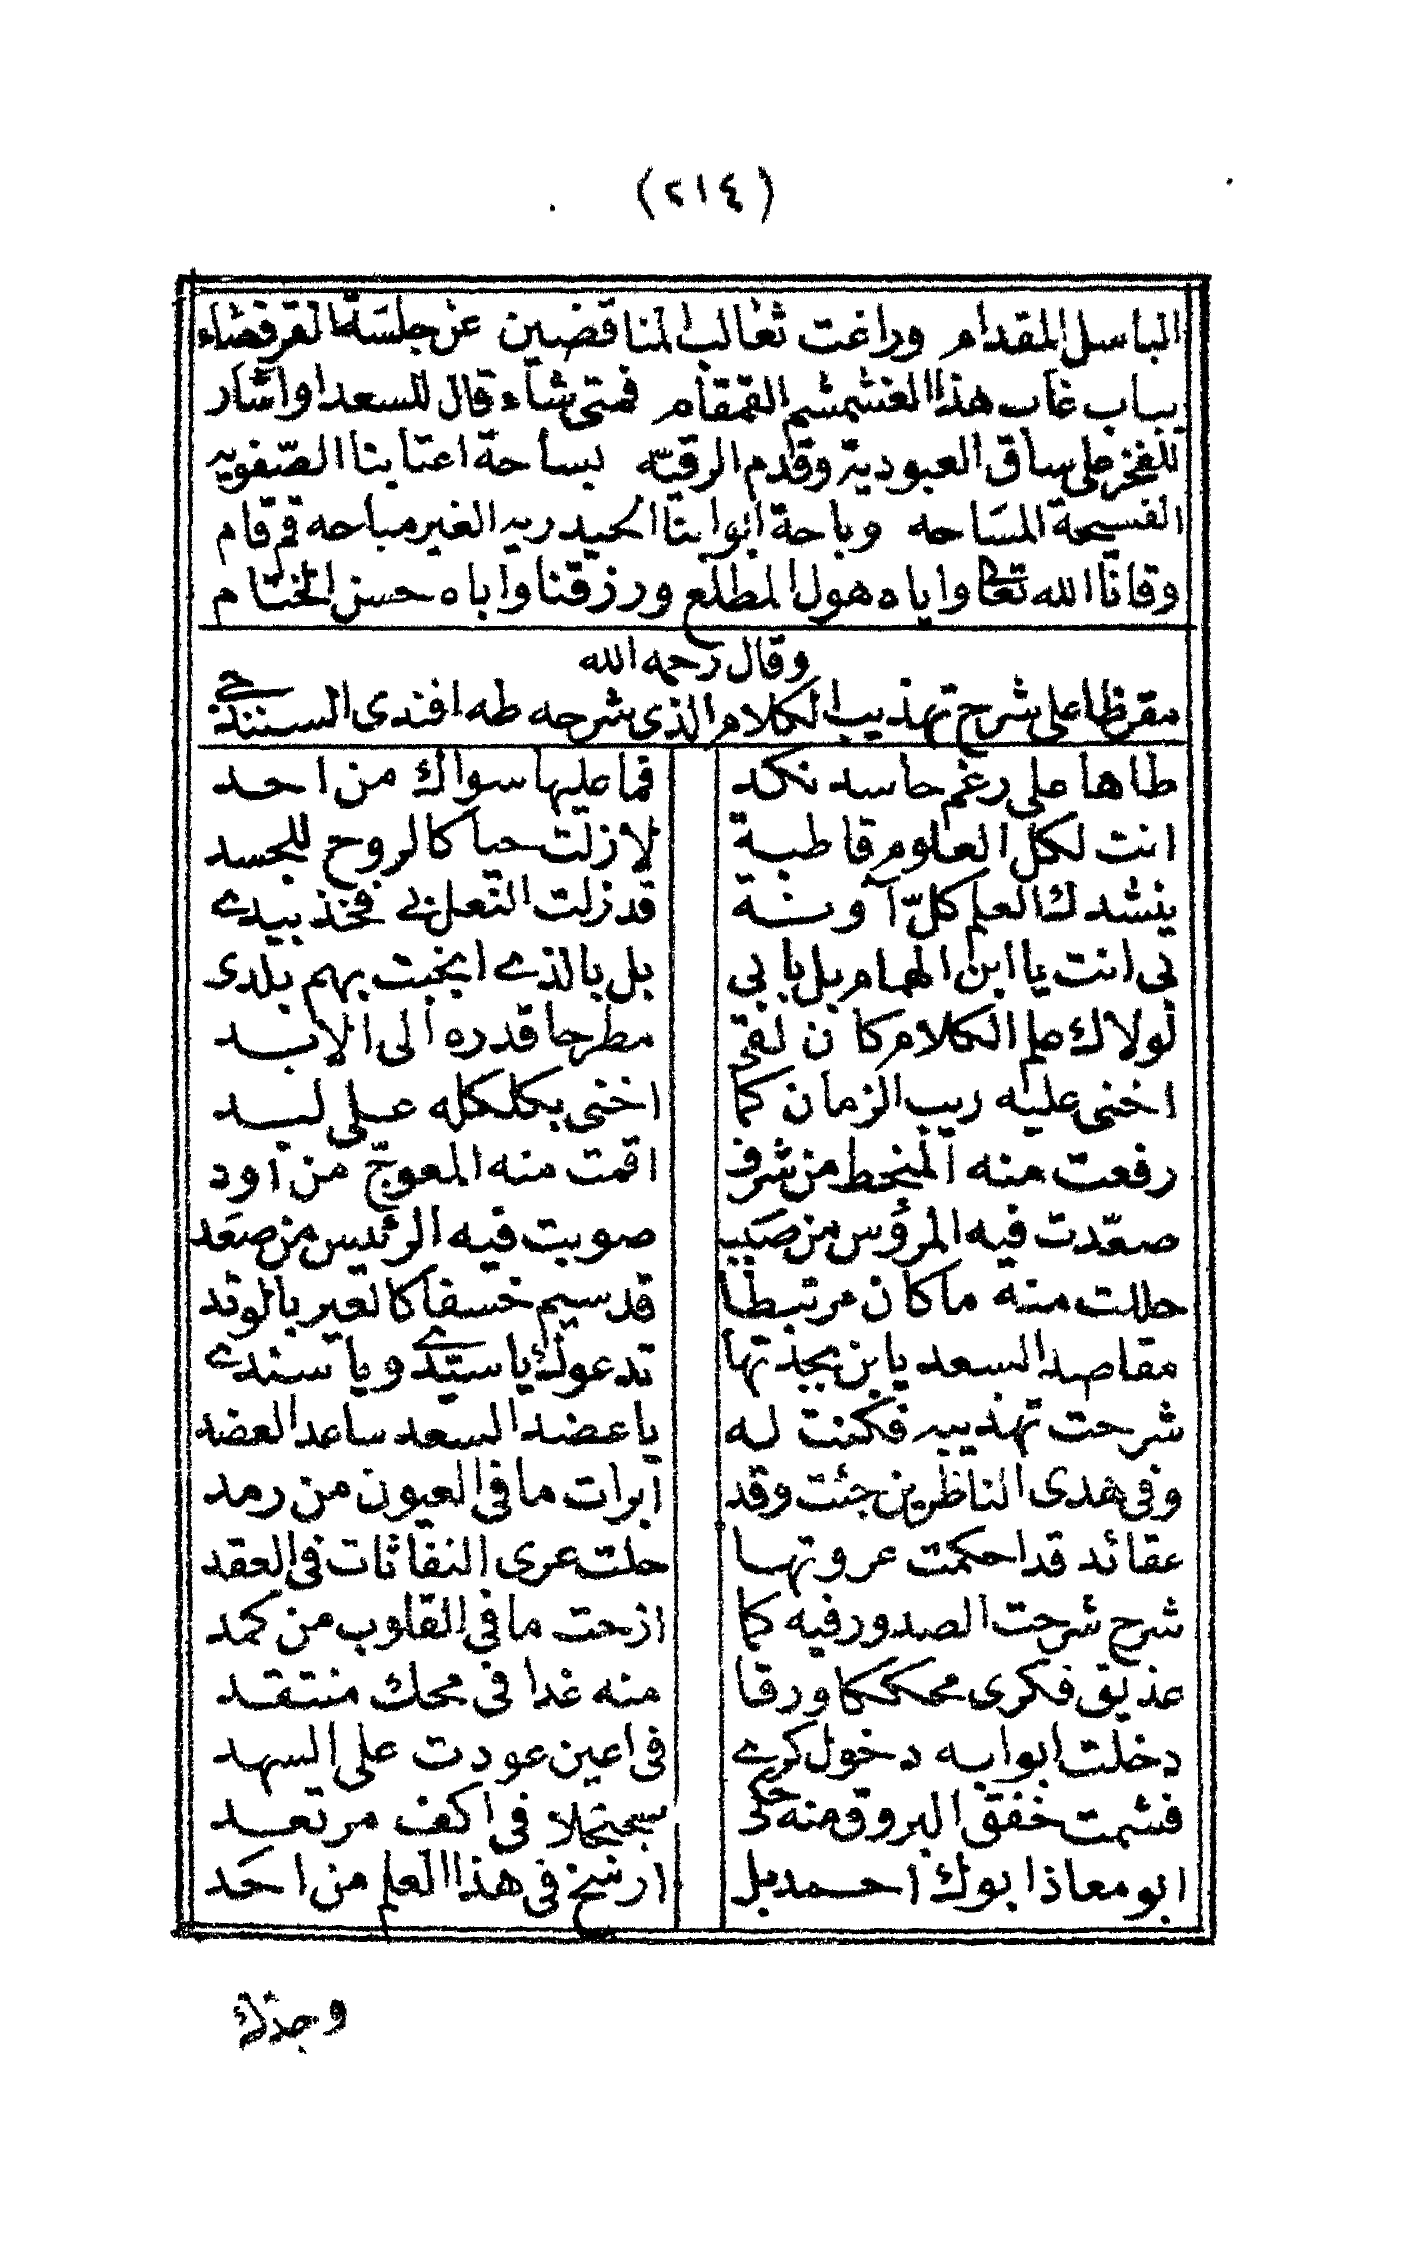 (٢١٤)
الباسل المقدام وراغت ثعالب المناقضين عن جلسة القرفصاء
بباب غاب هذا الغشمشم القمقام فمتى شاء قال للسعد او اشار
للفخر على ساق العبودية وقدم الرقيه بساحة اعتابنا الصفويه
الفسيحة المساحه وباحة ابوابنا الحيدريه الغير مباحه قم قام
وقانا الله تعالى واياه هول المطلع ورزقنا واياه حسن الختام
وقال رحمه الله
مقرظا على شرح تهذيب الكلام الذى شرحه طه افندى السنندجى
طاها على رغم حاسد نكد فما عليها سواك من احد
انت لكل العلوم قاطبة لازلت حيا كالروح للجسد
ينشدك العلم كلّ آونة قد زلت النعل بي فخذ بيدي
بي انت يا ابن الهمام بل بابي بل بالذي انجبت بهم بلدى
لولاك علم الكلام كان لقى مطرحا قدره الى الابد
اخنى عليه ريب الزمان كما اخنى بكلكله على لبد
رفعت منه المنحط من شرف اقمت منه المعوجّ من اود
صعّدت فيه المرؤس من صبب صوبت فيه الرئيس من صعد
حللت منه ماكان مرتبطا قد سيم خسفا كالعير بالوتد
مقاصد السعد يابن بجدتها تدعوك يا سيّدي ويا سندي
شرحت تهذيبه فكنت له يا عضد السعد ساعد العضد
وفى هدى الناظرين جئت وقد ابرات مافى العيون من رمد
عقائد قد احكمت عروتها حلت عرى النفاثات فى العقد
شرح شرحت الصدور فيه كما ازحت مافى القلوب من كمد
عذيق فكرى محككا ورقا منه غدا فى محك منتقد
دخلت ابوابه دخول كرى فى اعين عودت على السهد
فشمت خفق البروق منه حكى سجنجلا فى اكف مرتعد
ابو معاذ ابوك احمد بل ارسخ فى هذا العلم من احد
وجدك